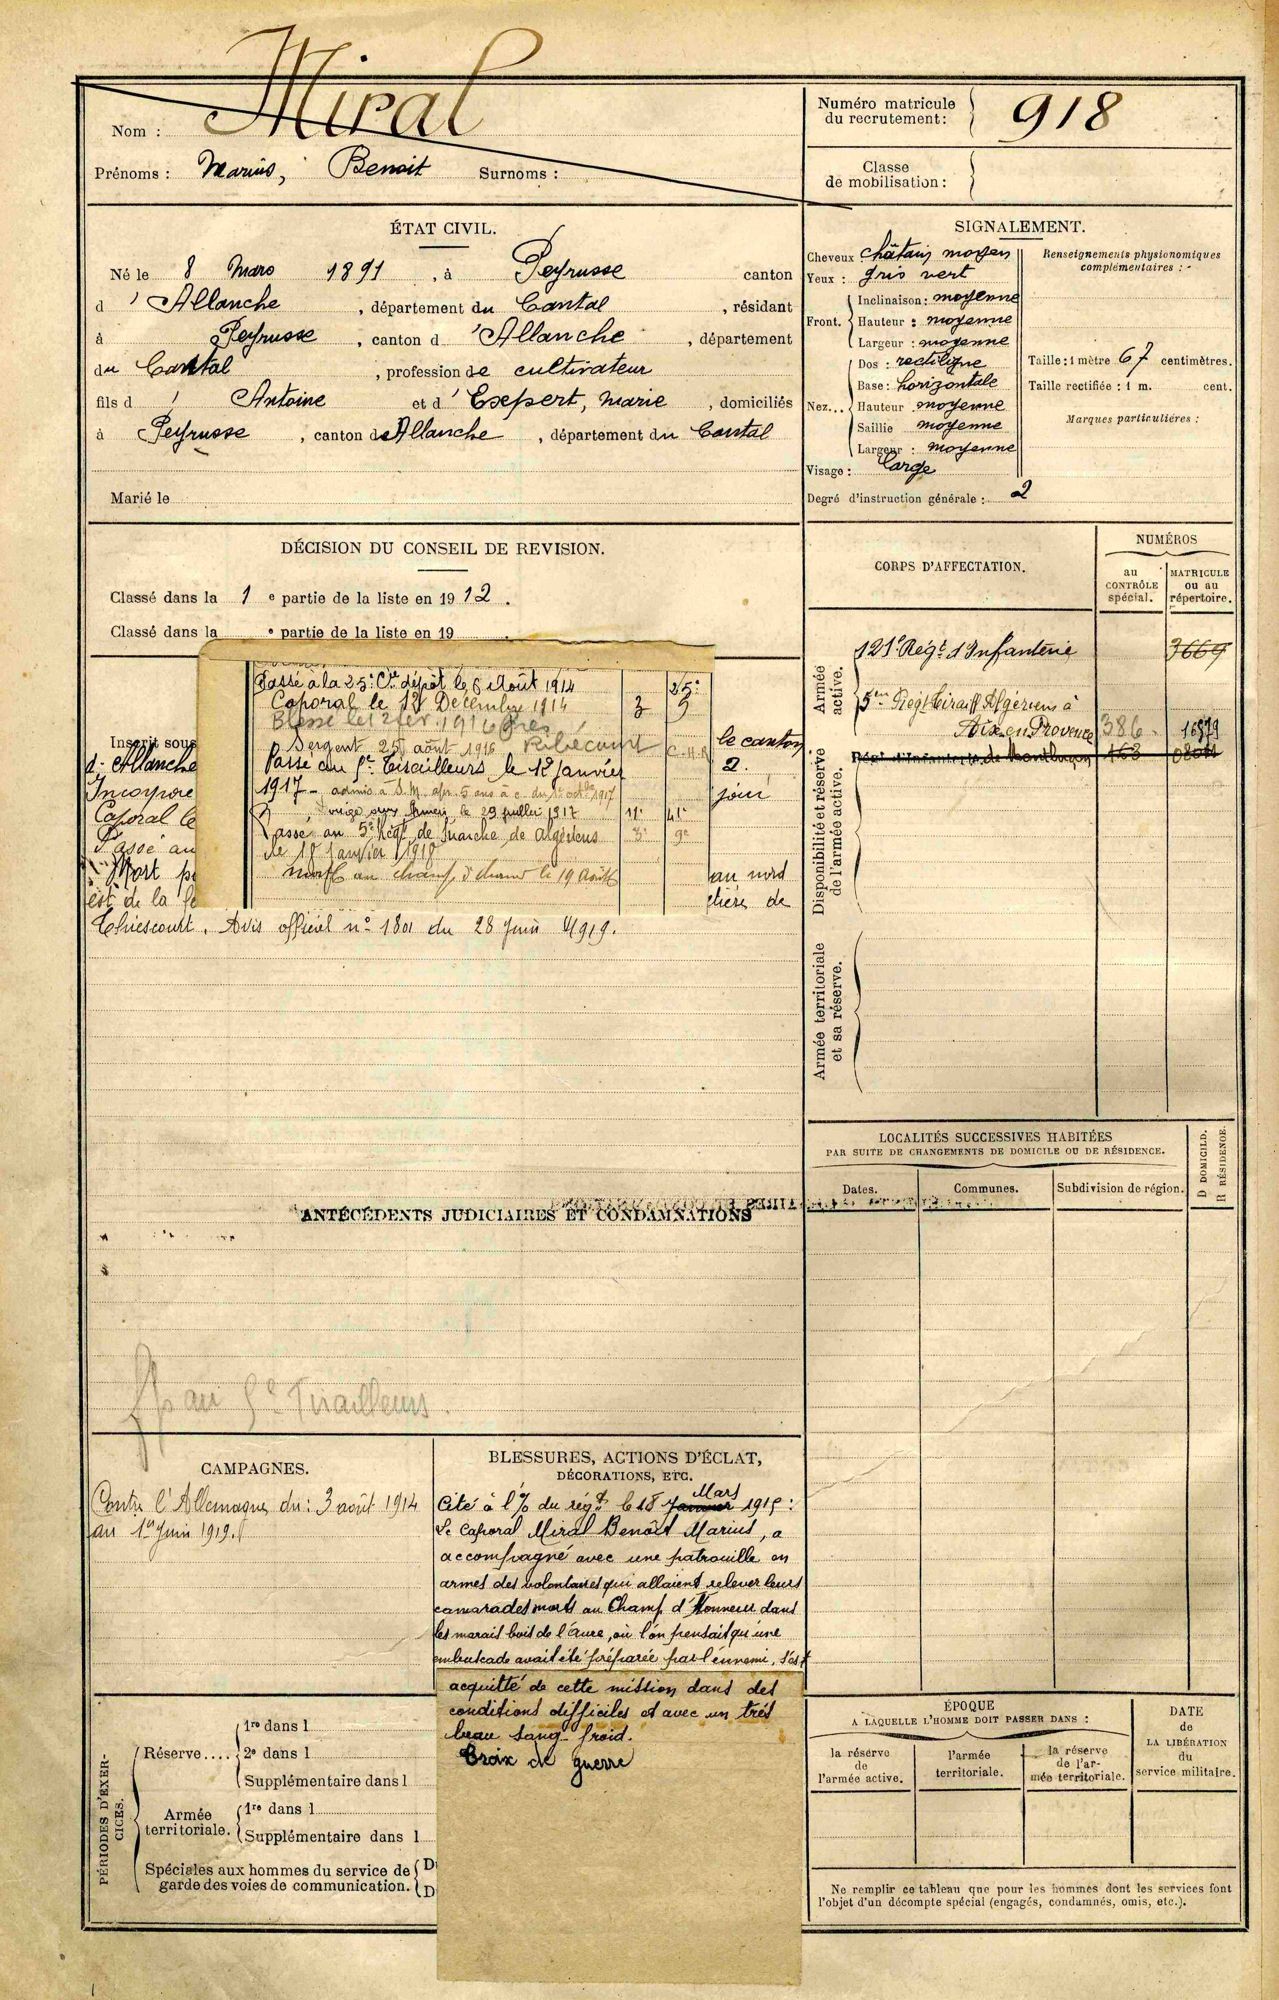 Nom : Miral
Prénoms : Marius, Benoit Surnoms :
Numéro matricule
du recrutement : 918
Classe
de mobilisation :
ÉTAT CIVIL.
Né le 8 Mars 1891, à Peyrusse canton
d'Allanche, département du Cantal, résidant
à Peyrusse, canton d'Allanche, département
du Cantal, profession de cultivateur
fils d' Antoine et d' Esepert, Marie, domiciliés
à Peyrusse, canton de Allanche, département du Cantal
Marié le
SIGNALEMENT.
Cheveux châtain moyen
Yeux : gris vert
Front. Inclinaison : moyenne
Hauteur : moyenne
Largeur : moyenne
Nez... Dos : rectiligne
Base : horizontale
Hauteur moyenne
Saillie moyenne
Largeur : moyenne
Visage : large
Degré d'instruction générale : 2
Renseignements physionomiques
complémentaires :
Taille : 1 mètre 67 centimètres.
Taille rectifiée : 1 m. cent.
Marques particulières :
DÉCISION DU CONSEIL DE REVISION.
Classé dans la 1 e partie de la liste en 1912.
Classé dans la e partie de la liste en 19 .
Passé à la 25e Cie dépôt le 6 Août 1914 25e
Caporal le 12 Décembre 1914 3 5
Blessé le 12 fev. 1916 près
Ribécourt
Sergent 25 août 1916 C.H.R
Passé au 5e Tirailleurs le 12 janvier
1917 - admis à S.M. apr. 5 ans à c. du 1er octobre 1917
le 29 juillet 1917 11e 41e
Passé au 5e Régt de marche de Algériens 3e 9e
le 18 janvier 1918
mort au champ d'honneur le 19 Août
Inscrit sous
le canton
d' Allanche
2.
Incorporé
Caporal le
Passé au
Mort
au nord
est de la
Thiescourt. Avis officiel n° 1801 du 28 Juin 1919.
CORPS D'AFFECTATION.
NUMÉROS
au
CONTRÔLE
spécial.
MATRICULE
ou au
répertoire.
Armée
active.
121e Régt d'Infanterie 3669
5em Régt Tiraill Algériens à
Aix en Provence 386 16979
Disponibilité et réserve
de l'armée active.
Régt d'Infanterie de Montluçon 163
Armée territoriale
et sa réserve.
LOCALITÉS SUCCESSIVES HABITÉES
PAR SUITE DE CHANGEMENTS DE DOMICILE OU DE RÉSIDENCE.
Dates. Communes. Subdivision de région.
D DOMICILE.
R RÉSIDENCE.
ANTÉCÉDENTS JUDICIAIRES ET CONDAMNATIONS
au 5e Tirailleurs.
CAMPAGNES.
Contre l'Allemagne du : 3 août 1914
au 1er Juin 1919.
BLESSURES, ACTIONS D'ÉCLAT,
DÉCORATIONS, ETC.
Mars
Cité à l'% du régt le 18 Janvier 1915 :
Le Caporal Miral Benoît Marius, a
accompagné avec une patrouille en
armes des volontaires qui allaient relever leurs
camarades morts au Champ d'Honneur dans
les marais bois de l'Aure, où l'on pensait qu'une
embuscade avait été préparée par l'ennemi, s'est
acquitté de cette mission dans des
conditions difficiles et avec un très
beau sang-froid.
Croix de guerre
PÉRIODES D'EXER-
CICES.
Réserve.... 1re dans l
2e dans l
Supplémentaire dans l
Armée
territoriale. 1re dans l
Supplémentaire dans l
Spéciales aux hommes du service de D
garde des voies de communication. D
ÉPOQUE
A LAQUELLE L'HOMME DOIT PASSER DANS :
la réserve
de
l'armée active.
l'armée
territoriale.
la réserve
de l'ar-
mée territoriale.
DATE
de
LA LIBÉRATION
du
service militaire.
Ne remplir ce tableau que pour les hommes dont les services font
l'objet d'un décompte spécial (engagés, condamnés, omis, etc.).